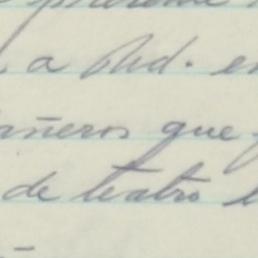 a Ud. en
añeros que
de teatro